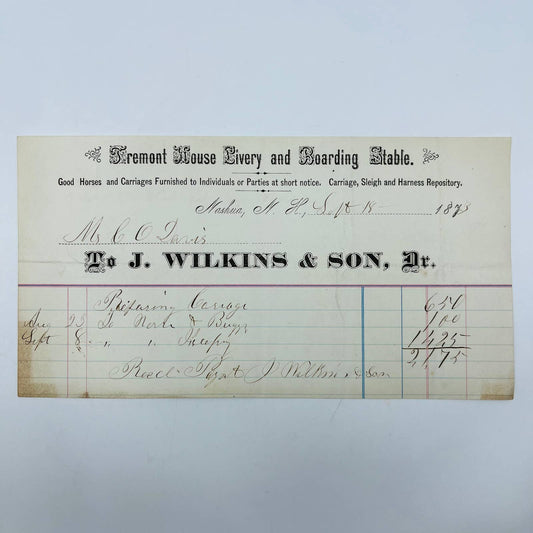 Tremont House Livery and Boarding Stable.
Good Horses and Carriages Furnished to Individuals or Parties at short notice. Carriage, Sleigh and Harness Repository.
Nashua, N. H., Sept 18 187
Mr C O Davis
To J. WILKINS & SON, Dr.
Repairing Carriage 650
Aug 23 To Horse & Buggy 100
Sept 8 " " 1425
2175
Recd Payt J Wilkins & Son